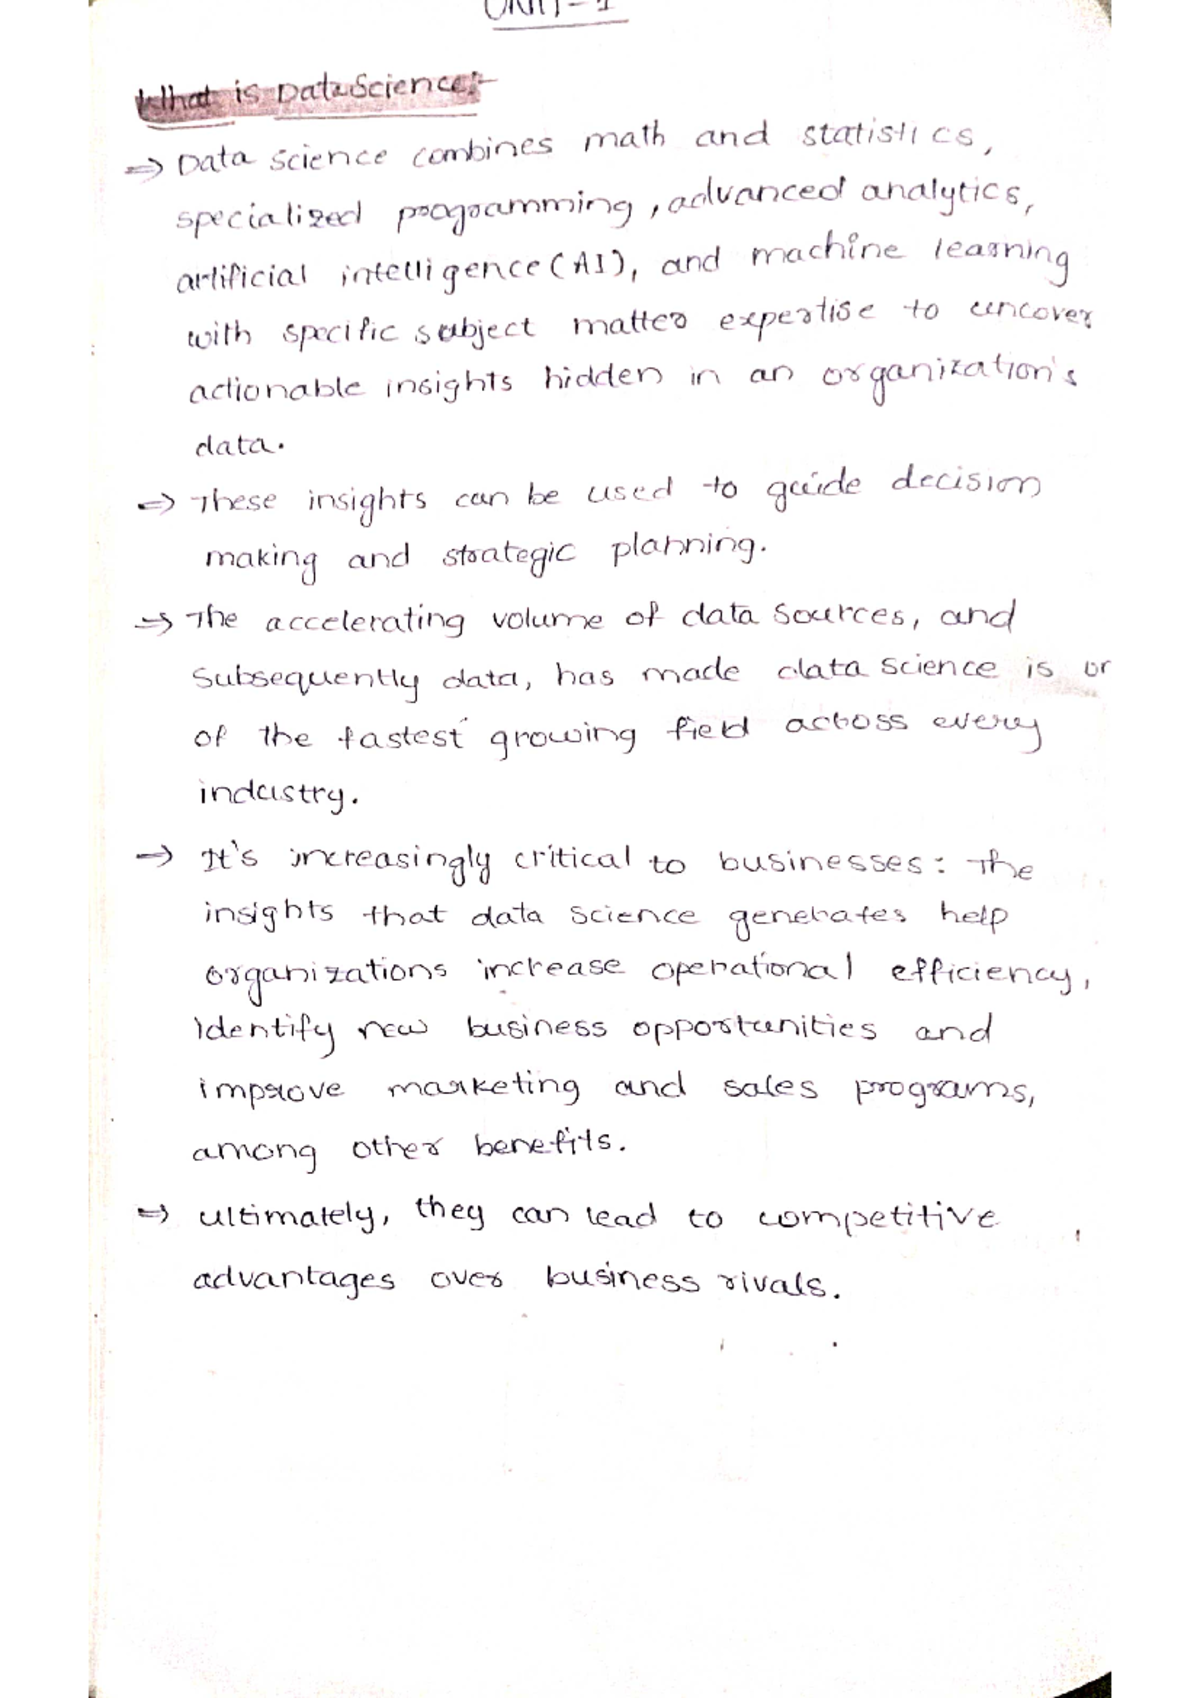 UNIT-1
What is Data Science:-
=> Data science combines math and statistics,
specialized programming, advanced analytics,
artificial intelligence (AI), and machine learning
with specific subject matter expertise to uncover
actionable insights hidden in an organization's
data.
=> These insights can be used to guide decision
making and strategic planning.
=> The accelerating volume of data sources, and
Subsequently data, has made data science is or
of the fastest growing field across every
industry.
=> It's increasingly critical to businesses: The
insights that data science generates help
organizations increase operational efficiency,
identify new business opportunities and
improve marketing and sales programs,
among other benefits.
=> ultimately, they can lead to competitive
advantages over business rivals.